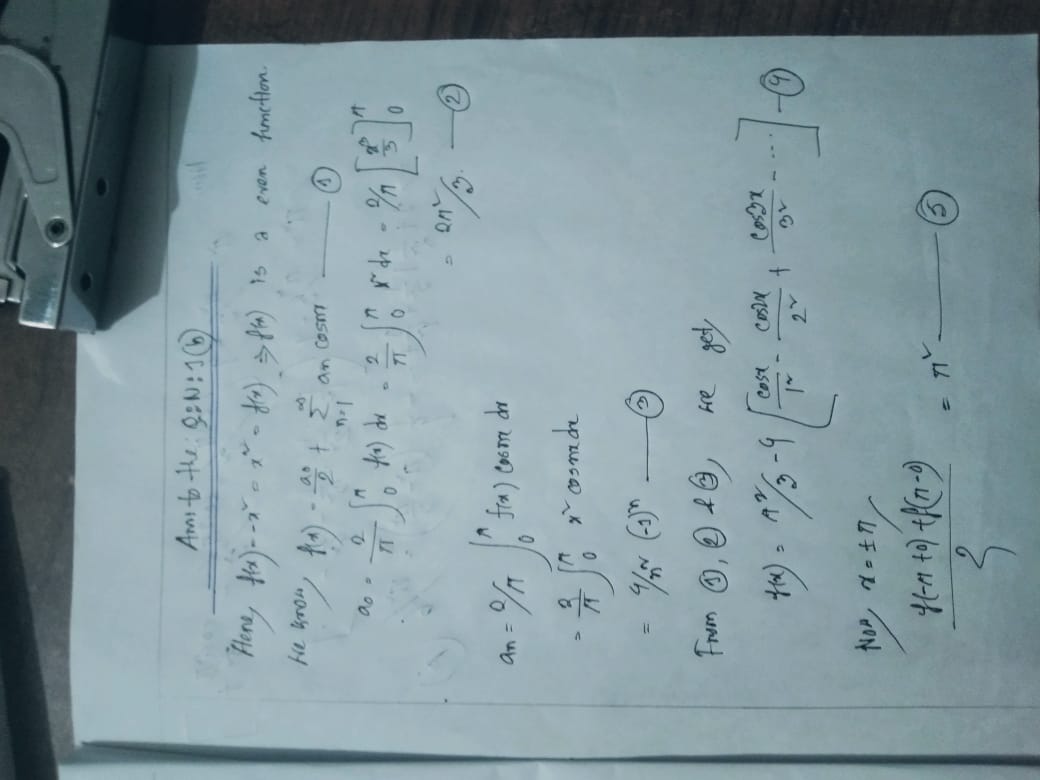 Ans: to the: Q: N: 1(b)
Here, f(x) = -x² = x² = f(x) ⇒ f(x) is a even function.
We know, f(x) = a₀/2 + ∑_{n=1}^{∞} an cosnx ——— ①
a₀ = 2/π ∫₀^π f(x) dx = 2/π ∫₀^π x² dx = 2/π [x³/3]₀^π
= 2π²/3. —— ②
an = 2/π ∫₀^π f(x) cosnx dx
= 2/π ∫₀^π x² cosnx dx
= 4/n² (-1)ⁿ ——— ③
From ①, ② & ③, we get,
f(x) = π²/3 - 4 [cosx/1² - cos2x/2² + cos3x/3² - ...] — ④
Now, x = ± π
f(-π+0) + f(π-0)/2 = π² ——— ⑤